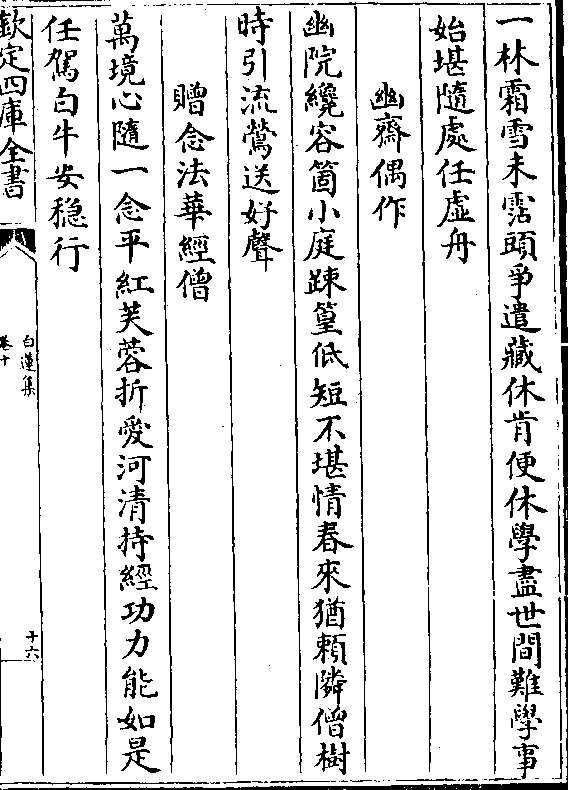 一林霜雪未霑頭爭遣藏休肯便休學盡世間難學事
始堪隨處任虛舟
幽齋偶作
幽院纔容箇小庭踈篁低短不堪情春來猶頼隣僧樹
時引流鶯送好聲
贈念法華經僧
萬境心隨一念平紅芙蓉折愛河清持經功力能如是
任駕白牛安穏行
欽定四庫全書
白蓮集
卷十
十六